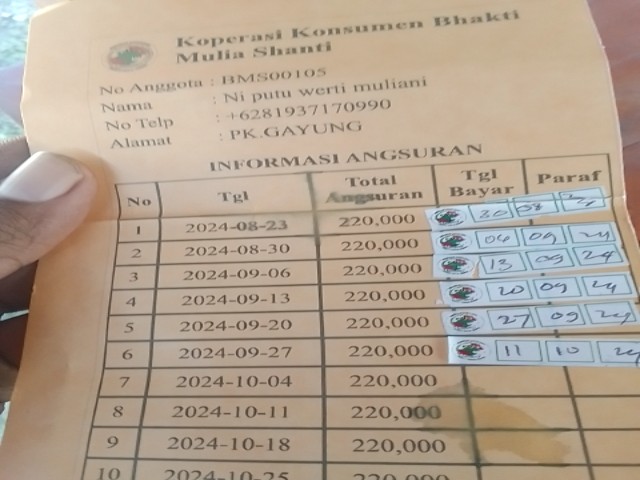 Koperasi Konsumen Bhakti
Mulia Shanti
No Anggota : BMS00105
Nama : Ni putu werti muliani
No Telp : +6281937170990
Alamat : PK.GAYUNG
INFORMASI ANGSURAN
No Tgl Total Angsuran Tgl Bayar Paraf
1 2024-08-23 220,000 30 08 24
2 2024-08-30 220,000 06 09 24
3 2024-09-06 220,000 13 09 24
4 2024-09-13 220,000 20 09 24
5 2024-09-20 220,000 27 09 24
6 2024-09-27 220,000 11 10 24
7 2024-10-04 220,000
8 2024-10-11 220,000
9 2024-10-18 220,000
10 2024-10-25 220,000